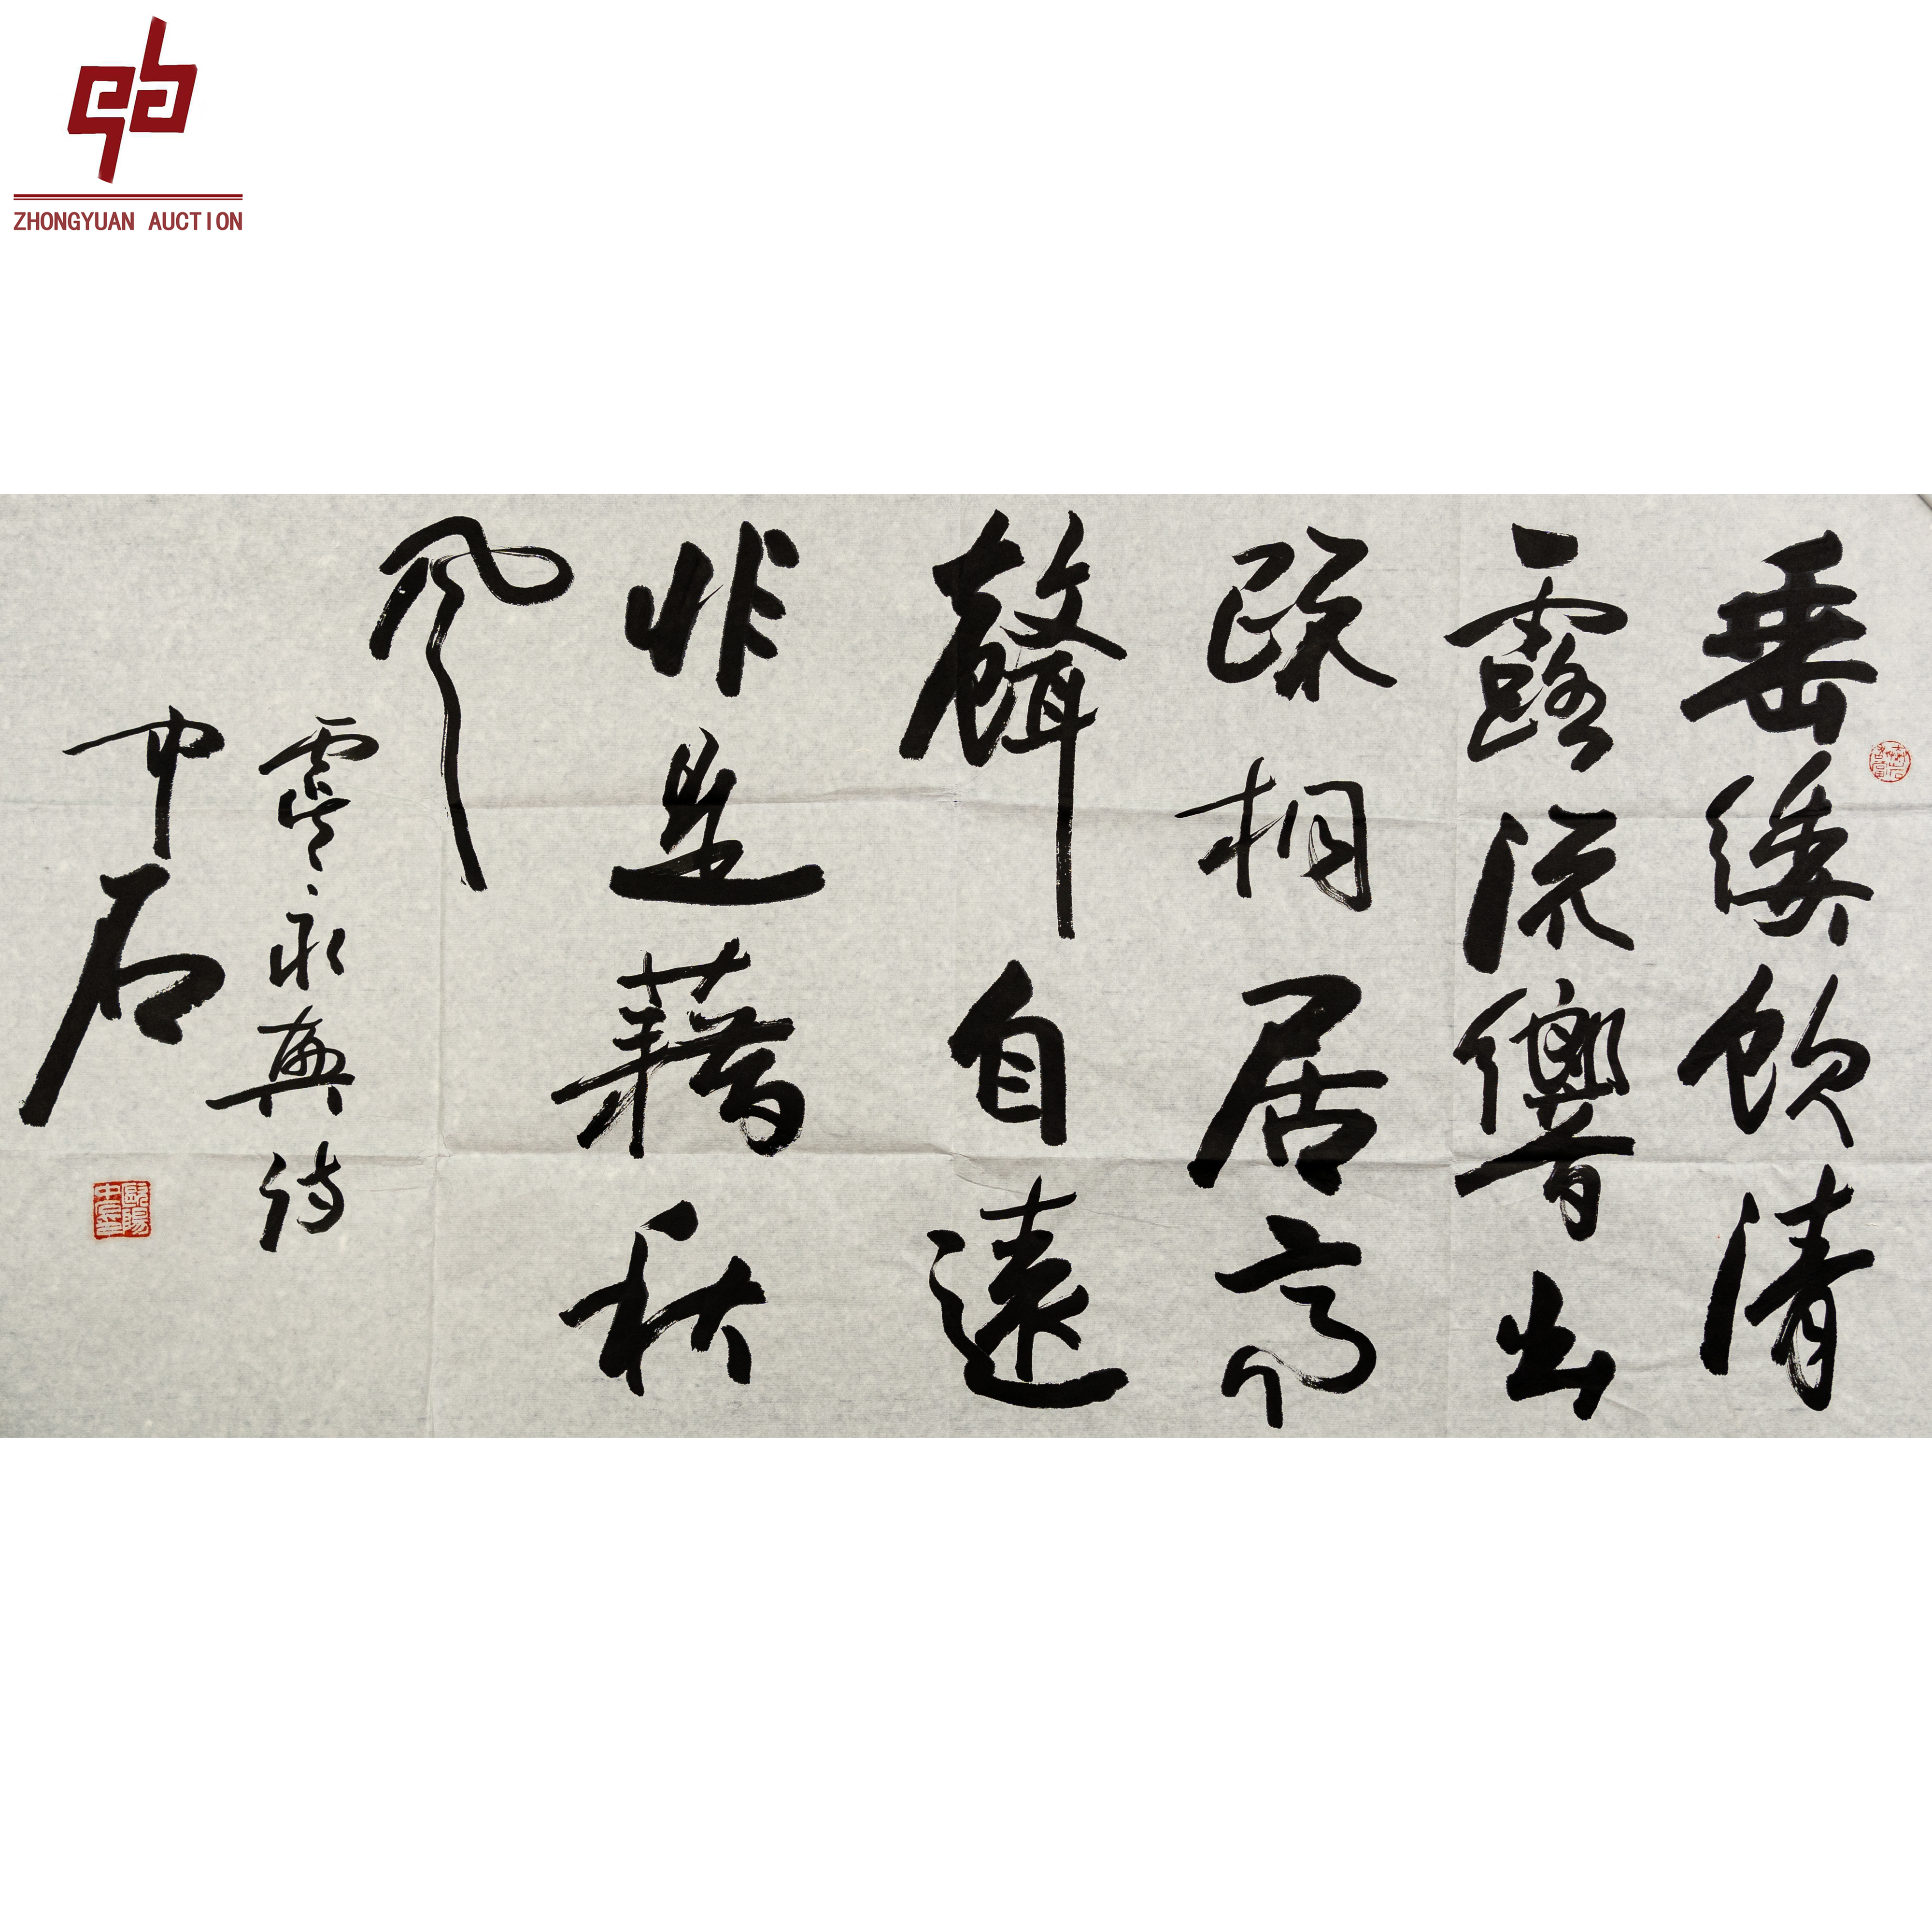 ZHONGYUAN AUCTION
垂緌飲清
露流響出
疎桐居高
聲自遠
非是藉秋
風
虞永興詩
中石
歐陽
中石